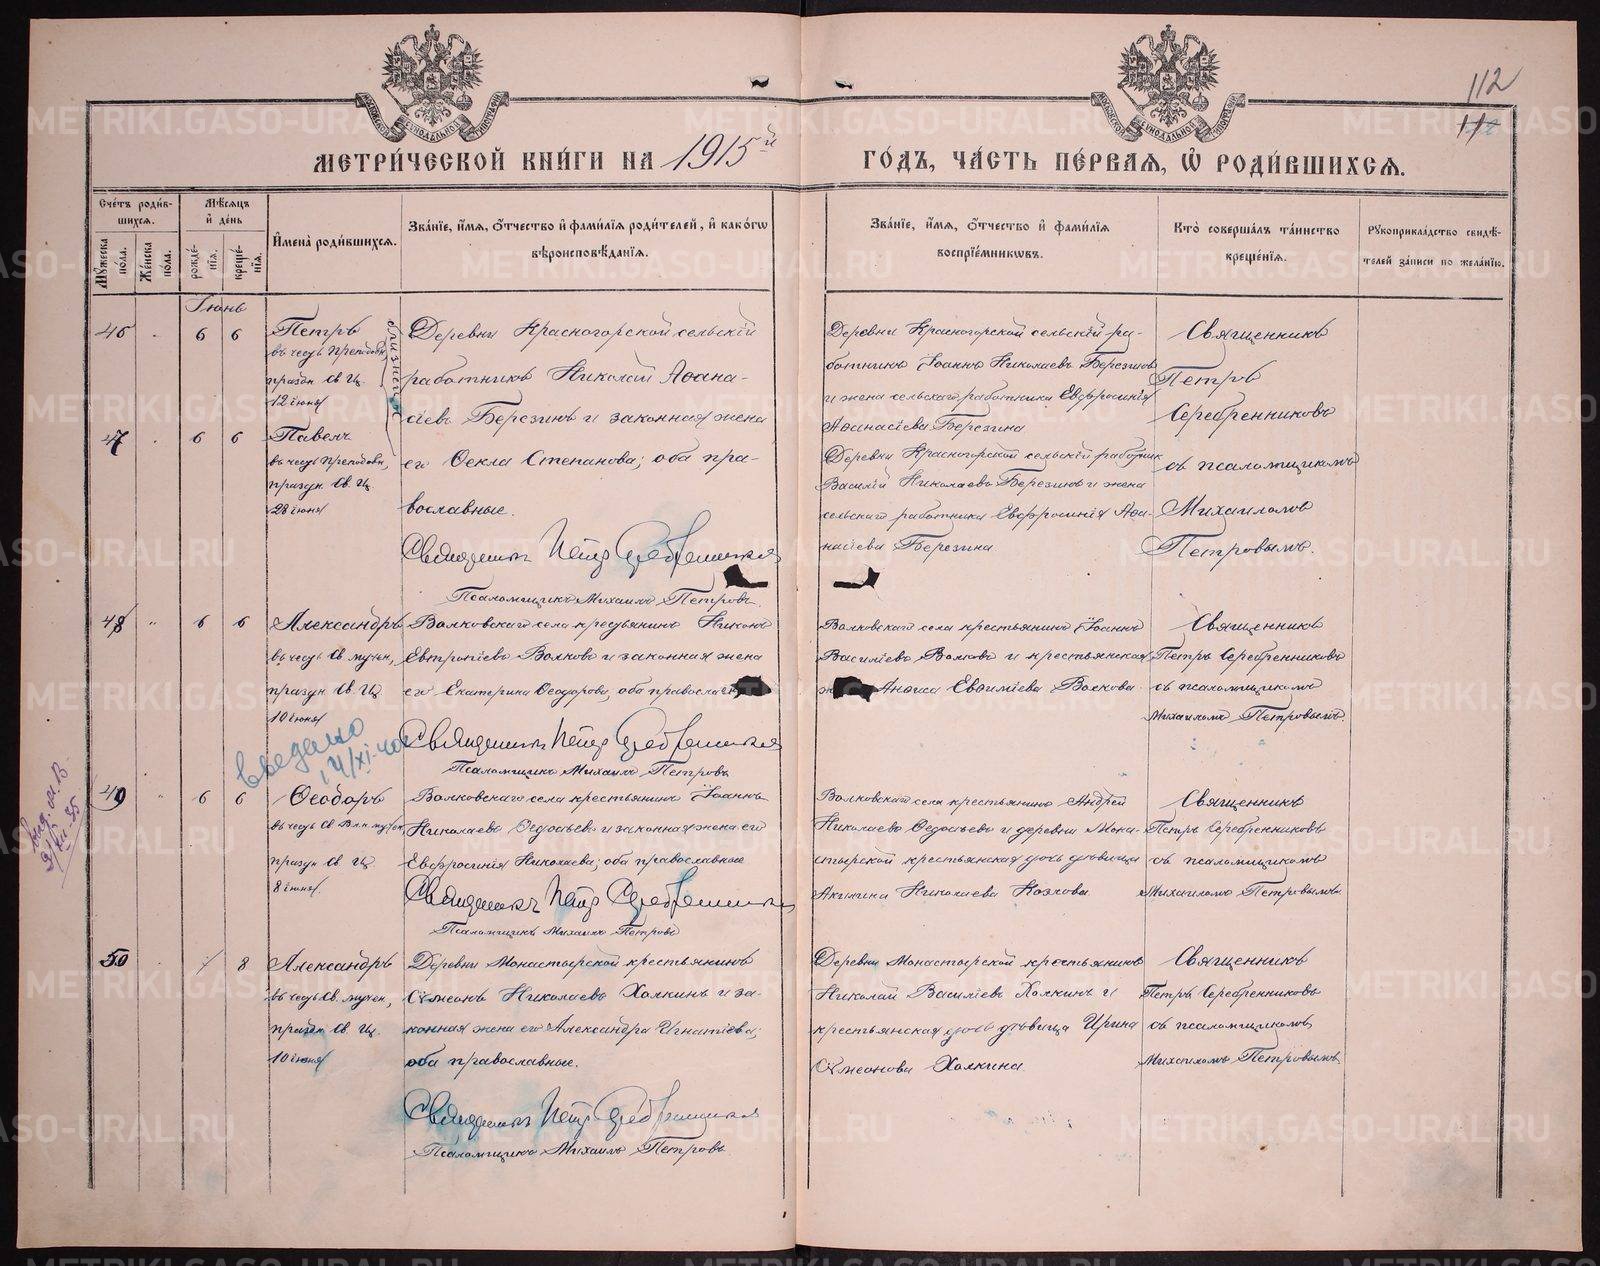 112
МЕТРИ́ЧЕСКОЙ КНИ́ГИ НА 1915й ГО́ДЪ, ЧА́СТЬ ПЕ́РВАѦ, Ѡ҆ РОДИ́ВШИХСѦ.
Сче́тъ роди́в-
шихсѧ.
Мꙋ́жеска по́ла.
Же́нска по́ла.
Мѣ́сѧцъ и҆ де́нь
рожде́-
нїѧ.
креще́-
нїѧ.
И҆мена̀ роди́вшихсѧ.
Зва́нїе, и҆́мѧ, ѻ҆́тчество и҆ фами́лїѧ роди́телей, и҆ како́гѡ
вѣроисповѣ́данїѧ.
Зва́нїе, и҆́мѧ, ѻ҆́тчество и҆ фами́лїѧ
воспрїе́мникѡвъ.
Кто̀ соверша́лъ та́инство
креще́нїѧ.
Рꙋкоприкла́дство свидѣ́-
телей за́писи по жела́нїю.
Іюнь
46 6 6
Петръ
въ честь Преподобн.
праздн. Св. Ц.
12 іюня
близнецы
47 6 6
Павелъ
въ честь Преподобн,
праздн. Св. Ц.
28 іюня
Деревни Красногорской сельскій
работникъ Николай Аѳана-
сіевъ Березинъ и законная жена
его Ѳекла Степанова; оба пра-
вославные.
Священникъ Петръ Серебренниковъ
Псаломщикъ Михаилъ Петровъ.
Деревни Красногорской сельскій ра-
ботникъ Іоаннъ Николаевъ Березинъ
и жена сельскаго работника Евфросинія
Аѳанасіева Березина
Деревни Красногорской сельскій работник
Василій Николаевъ Березинъ и жена
сельскаго работника Евфросинія Аѳа-
насіева Березина
Священникъ
Петръ
Серебренниковъ
съ псаломщикомъ
Михаиломъ
Петровымъ.
48 6 6
Александръ
въ честь Св. мучен,
праздн. Св. Ц.
10 іюня
Волковскаго села крестьянинъ Никонъ
Евтропіевъ Волковъ и законная жена
его Екатерина Ѳеодорова, оба православн
Священникъ Петръ Серебренниковъ
Псаломщикъ Михаилъ Петровъ
Волковскаго села крестьянинъ Іоаннъ
Василіевъ Волковъ и крестьянская
ж Анѳиса Евфиміева Волкова.
Священникъ
Петръ Серебренниковъ
съ псаломщикомъ
Михаиломъ Петровымъ.
введено
14/XI-40
49 6 6
Ѳеодоръ
въ честь Св. Влм. мучен
праздн. Св. Ц.
8 іюня.
Волковскаго села крестьянинъ Іоаннъ
Николаевъ Ѳедосѣевъ и законная жена его
Евфросинія Николаева; оба православные
Священникъ Петръ Серебренниковъ
Псаломщикъ Михаилъ Петровъ
Волковскаго села крестьянинъ Андрей
Николаевъ Ѳедосѣевъ и деревни Мона-
стырской крестьянская дочь дѣвица
Акилина Николаева Козлова.
Священникъ
Петръ Серебренниковъ
съ псаломщикомъ
Михаиломъ Петровымъ
50 7 8
Александръ
въ честь Св. мучен,
праздн. Св. Ц.
10 іюня
Деревни Монастырской крестьянинъ
Сѵмеонъ Николаевъ Халкинъ и за-
конная жена его Александра Игнатіева;
оба православные.
Священникъ Петръ Серебренниковъ
Псаломщикъ Михаилъ Петровъ.
Деревни Монастырской крестьянинъ
Николай Василіевъ Халкинъ и
крестьянская дочь дѣвица Ирина
Сѵмеонова Халкина.
Священникъ
Петръ Серебренниковъ
съ псаломщикомъ
Михаиломъ Петровымъ.
METRIKI.GASO-URAL.RU